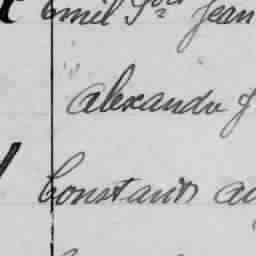 Emil Jean
Alexandre J
Constantin au